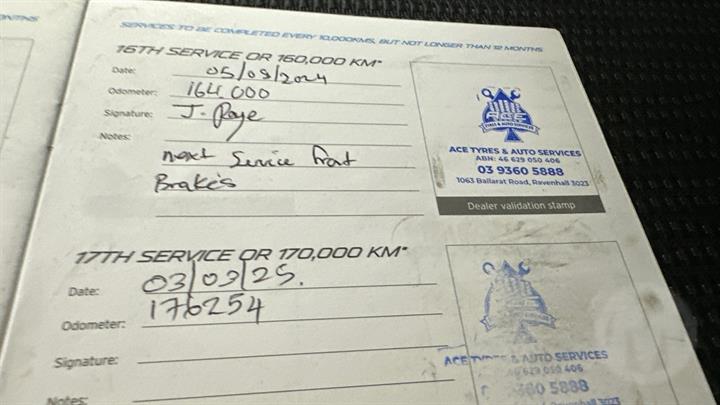 SERVICES TO BE COMPLETED EVERY 10,000KMS, BUT NOT LONGER THAN 12 MONTHS
16TH SERVICE OR 160,000 KM*
Date: 05/09/2024
Odometer: 164.000
Signature: J. Roye
Notes:
next Service front
Brakes
ACE
TYRES & AUTO SERVICES
ACE TYRES & AUTO SERVICES
ABN: 46 629 050 406
03 9360 5888
1063 Ballarat Road, Ravenhall 3023
Dealer validation stamp
17TH SERVICE OR 170,000 KM*
Date: 03/09/25.
Odometer: 176254
Signature:
Notes:
ACE & AUTO SERVICES
46 629 050 406
360 5888
Ravenhall 3023